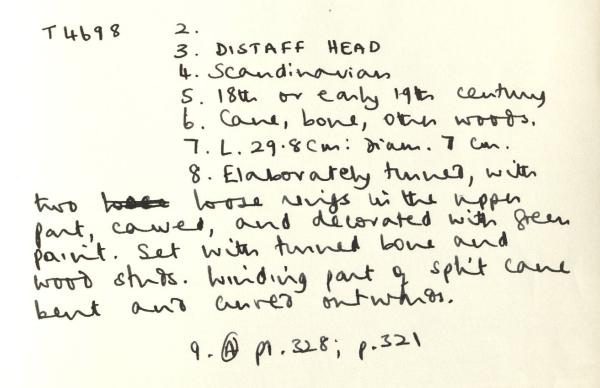 T4698 2.
3. DISTAFF HEAD
4. Scandinavian
5. 18th or early 19th century
6. Cane, bone, other woods.
7. L. 29.8cm: diam. 7 cm.
8. Elaborately turned, with
two loose rings in the upper
part, carved, and decorated with green
paint. Set with turned bone and
wood studs. Winding part of split cane
bent and curved outwards.
9. (A) pl. 328; p. 321